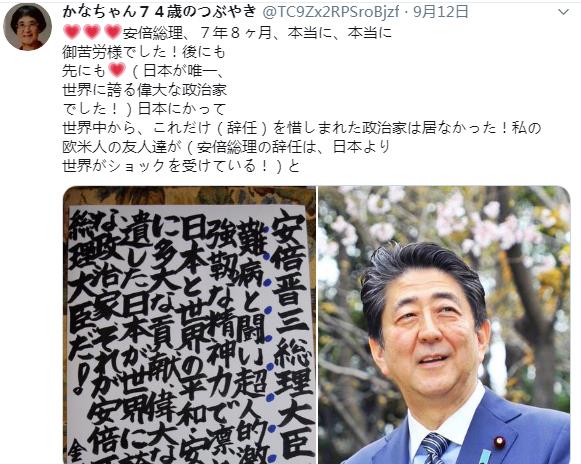 かなちゃん７４歳のつぶやき @TC9Zx2RPSroBjzf · 9月12日
安倍総理、７年８ヶ月、本当に、本当に
御苦労様でした！後にも
先にも（日本が唯一、
世界に誇る偉大な政治家
でした！）日本にかって
世界中から、これだけ（辞任）を惜しまれた政治家は居なかった！私の
欧米人の友人達が（安倍総理の辞任は、日本より
世界がショックを受けている！）と
安倍晋三総理大臣
難病と闘い超人的激
強靭な精神力で凛と
日本と世界の平和、安
に多大な貢献、偉大な
遺した日本が世界に誇
な政治家それが安倍
総理大臣だ！ 金